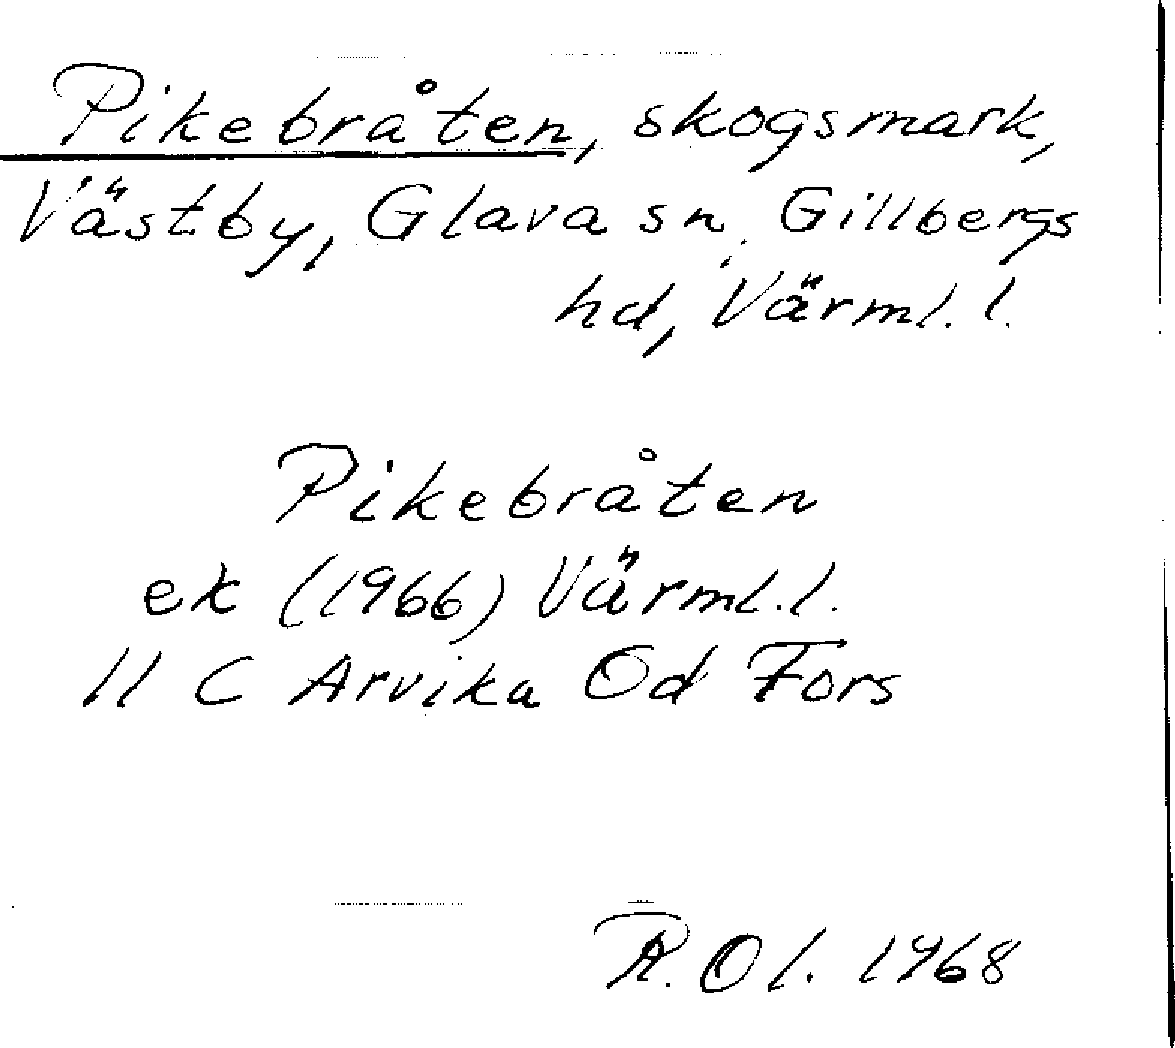 Pikebråten, skogsmark,
Västby, Glava sn, Gillbergs
hd, Värml. l.
Pikebråten
ek (1966) Värml. l.
11 C Arvika Od Fors
R. Ol. 1968